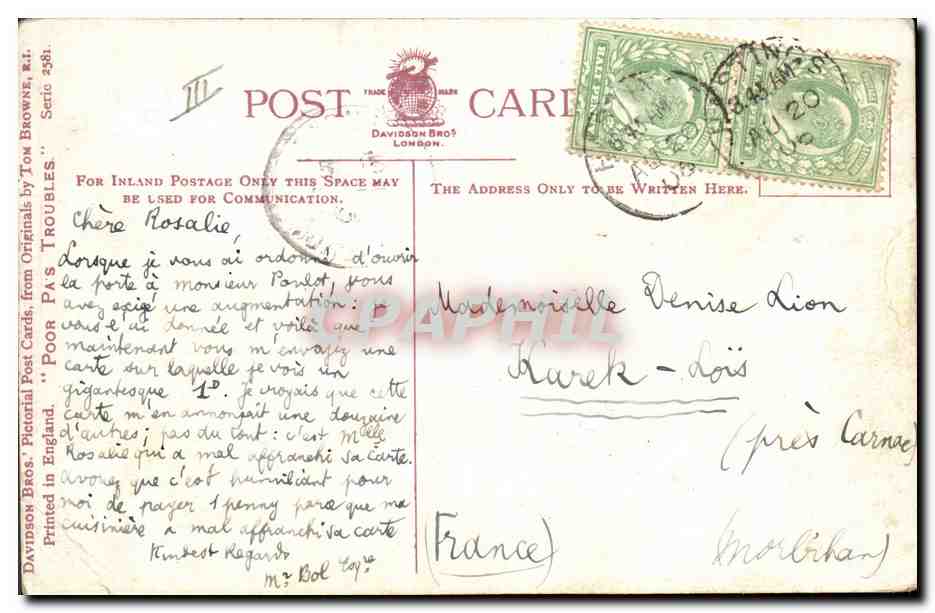 DAVIDSON BROS.' Pictorial Post Cards, from Originals by TOM BROWNE, R.I.
Printed in England. "POOR PA'S TROUBLES." Serie 2581.
III
POST CARD
TRADE MARK
DAVIDSON BROS.
LONDON.
FOR INLAND POSTAGE ONLY THIS SPACE MAY
BE USED FOR COMMUNICATION.
THE ADDRESS ONLY TO BE WRITTEN HERE.
HALF PENNY
8.45 AM
AU 20
06
8.45 AM
AU 20
06
Chère Rosalie,
Lorsque je vous ai ordonné d'ouvrir
la porte à monsieur Poulot, vous
avez exigé une augmentation: je
vous l'ai donnée et voilà que
maintenant vous m'envoyez une
carte sur laquelle je vois un
gigantesque 1D. je croyais que cette
carte m'en annonçait une douzaine
d'autres; pas du tout: c'est Melle
Rosalie qui a mal affranchi sa carte.
Avouez que c'est humiliant pour
moi de payer 1 penny parce que ma
cuisinière a mal affranchi sa carte
Kindest Regards
Mr Bol Esqre
Mademoiselle Denise Lion
Karek-Loïs
(près Carnac)
(France)
Morbihan)
CPAPHIL